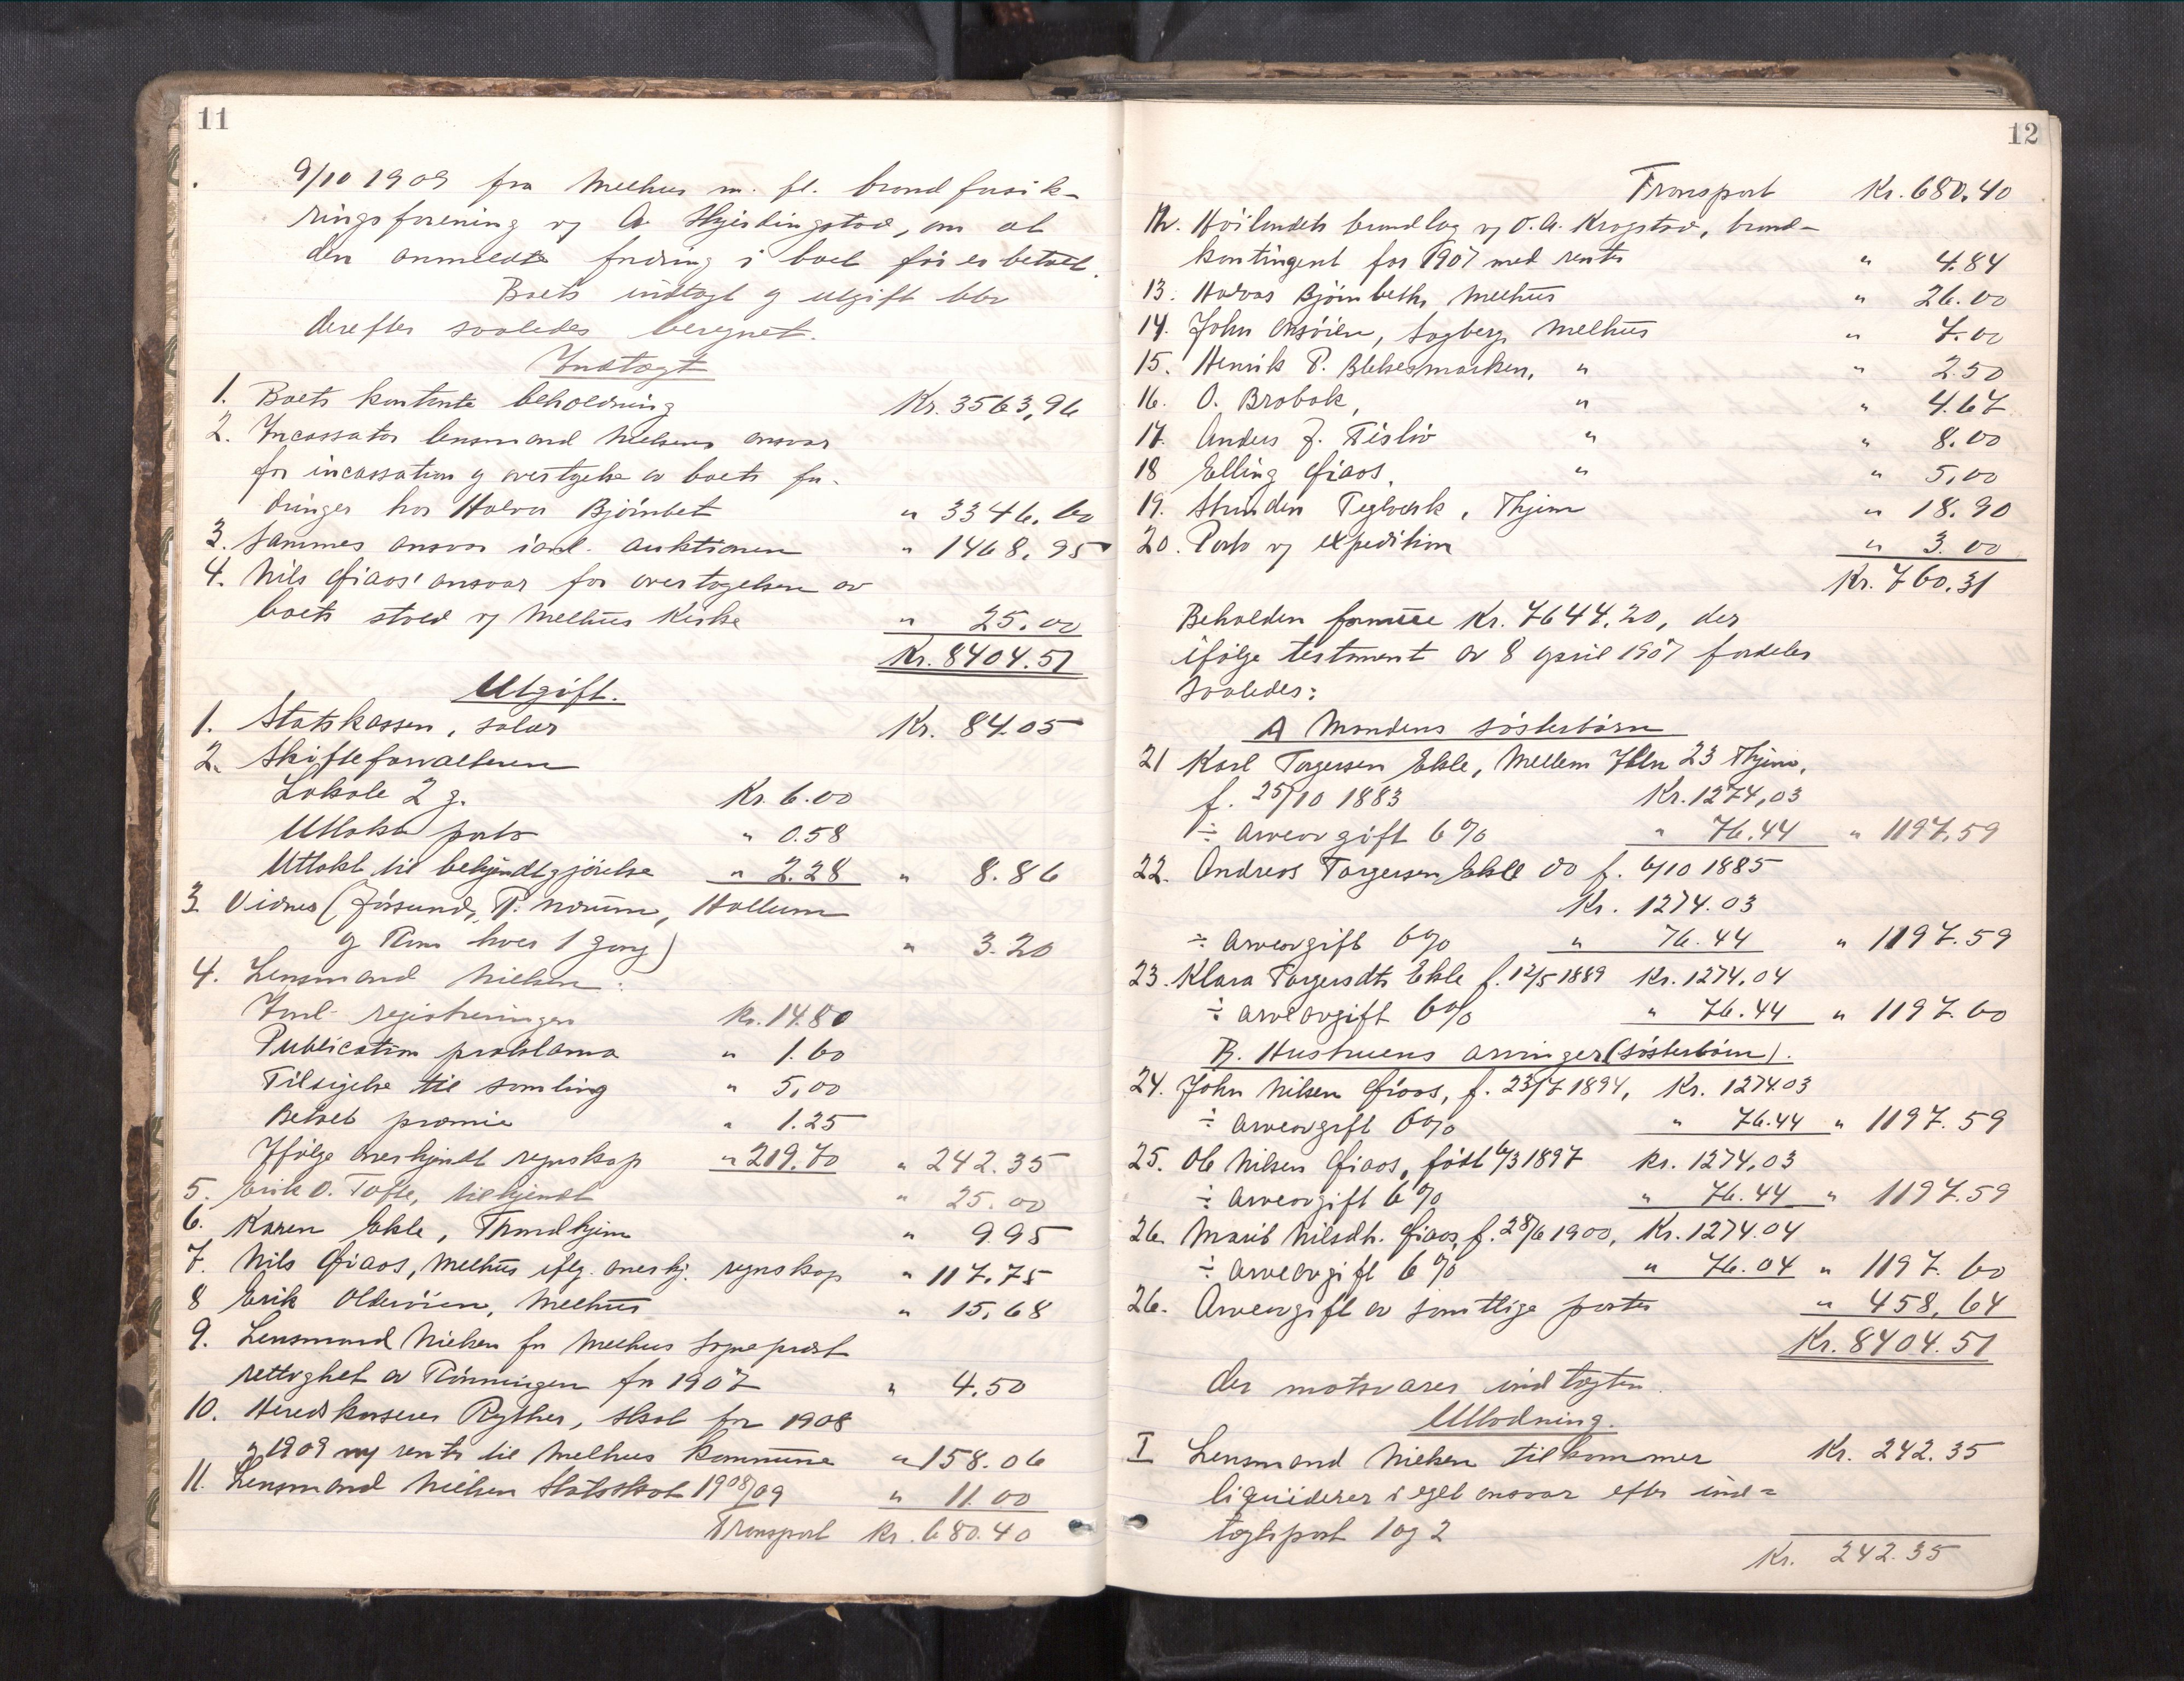 11
9/10 1909 fra Melhus m. fl. brandforsik-
ringsforening v/ A. Skjerdingstad, om at
den anmeldte fordring i boet før er betalt.
Boets indtægt og utgift blev
derefter saaledes beregnet.
Indtægt
1. Boets kontante beholdning Kr. 3563,96
2. Incassator lensmand Nielsens ansvar
for incassation og overtagelse av boets for-
dringer hos Halvor Bjørnbet " 3346.60
3. Sammes ansvar ianl. auktionen " 1468.95
4. Nils Øiaas' ansvar for overtagelsen av
boets stoel v/ Melhus Kirke " 25.00
Kr. 8404.51
Utgift.
1. Statskassen, salær Kr. 84.05
2. Skifteforvalteren
Lokale 2 g. Kr. 6.00
Utlokn porto " 0.58
Utlakt til bekjendtgjørelse " 2.28 " 8.86
3. Vidner (Jøsund, P. Norum, Hollum
og Rim hver 1 gang) " 3.20
4. Lensmand Nielsen:
Ianl. registreringen Kr. 14.80
Publication proklama " 1.60
Tilsigelse til samling " 5,00
Betalt præmie " 1.25
Ifølge anerkjendt regnskap " 219.70 " 242.35
5. Erik O. Tofte, tilkjendt " 25.00
6. Karen Ekle, Trondhjem " 9.95
7. Nils Øiaas, Melhus iflg. anerkj. regnskap " 117.75
8 Erik Oldervien, Melhus " 15.68
9. Lensmand Nielsen for Melhus sogneprest
rettighet av Rønningen for 1907 " 4.50
10. Heredskasserer Rytter, skat for 1908
og 1909 m/ renter til Melhus kommune " 158.06
11. Lensmand Nielsen Statsskat 1908/09 " 11.00
Transport Kr. 680.40
12
Transport Kr. 680.40
12. Høilandets brandlag v/ O. A. Krogstad, brand-
kontingent for 1907 med renter " 4.84
13. Halvor Bjørnbeth, Melhus " 26.00
14. John Onsøien, Sagberg, Melhus " 7.00
15. Henrik P. Blekesmarken, " " 2.50
16. O. Brobak, " " 4.67
17. Anders J. Fisliv " " 8.00
18 Elling Øiaas, " " 5,00
19. Strinden Teglverk, Thjem " 18.90
20. Porto og expedition " 3.00
Kr. 760.31
Beholden formue Kr. 7644.20, der
ifølge testament av 8 april 1907 fordeles
saaledes:
A Mandens søsterbørn
21 Karl Torgersen Ekle, Mellem Ihlen 23 Thjem,
f. 25/10 1883 Kr. 1274,03
÷ arveavgift 6% " 76.44 " 1197.59
22. Andreas Torgersen Ekle do f. 6/10 1885
Kr. 1274.03
÷ arveavgift 6% " 76.44 " 1197.59
23. Klara Torgersdtr Ekle f. 12/5 1889 Kr. 1274.04
÷ arveavgift 6% " 76.44 " 1197.60
B. Hustruens arvinger (søsterbørn).
24. John Nilsen Øiaas, f. 23/7 1894, Kr. 1274.03
÷ arveavgift 6% " 76.44 " 1197.59
25. Ole Nilsen Øiaas, født 6/3 1897 Kr. 1274,03
÷ arveavgift 6% " 76.44 " 1197.59
26. Marit Nilsdtr. Øiaas, f. 28/6 1900, Kr. 1274.04
÷ arveavgift 6% " 76.04 " 1197.60
26. Arveavgift av samtlige poster " 458,64
Kr. 8404.51
der motsvarer indtægten.
Utlodning.
I Lensmand Nielsen tilkommer Kr. 242.35
liquiderer i eget ansvar efter ind-
tægtspost 1 og 2
Kr. 242.35